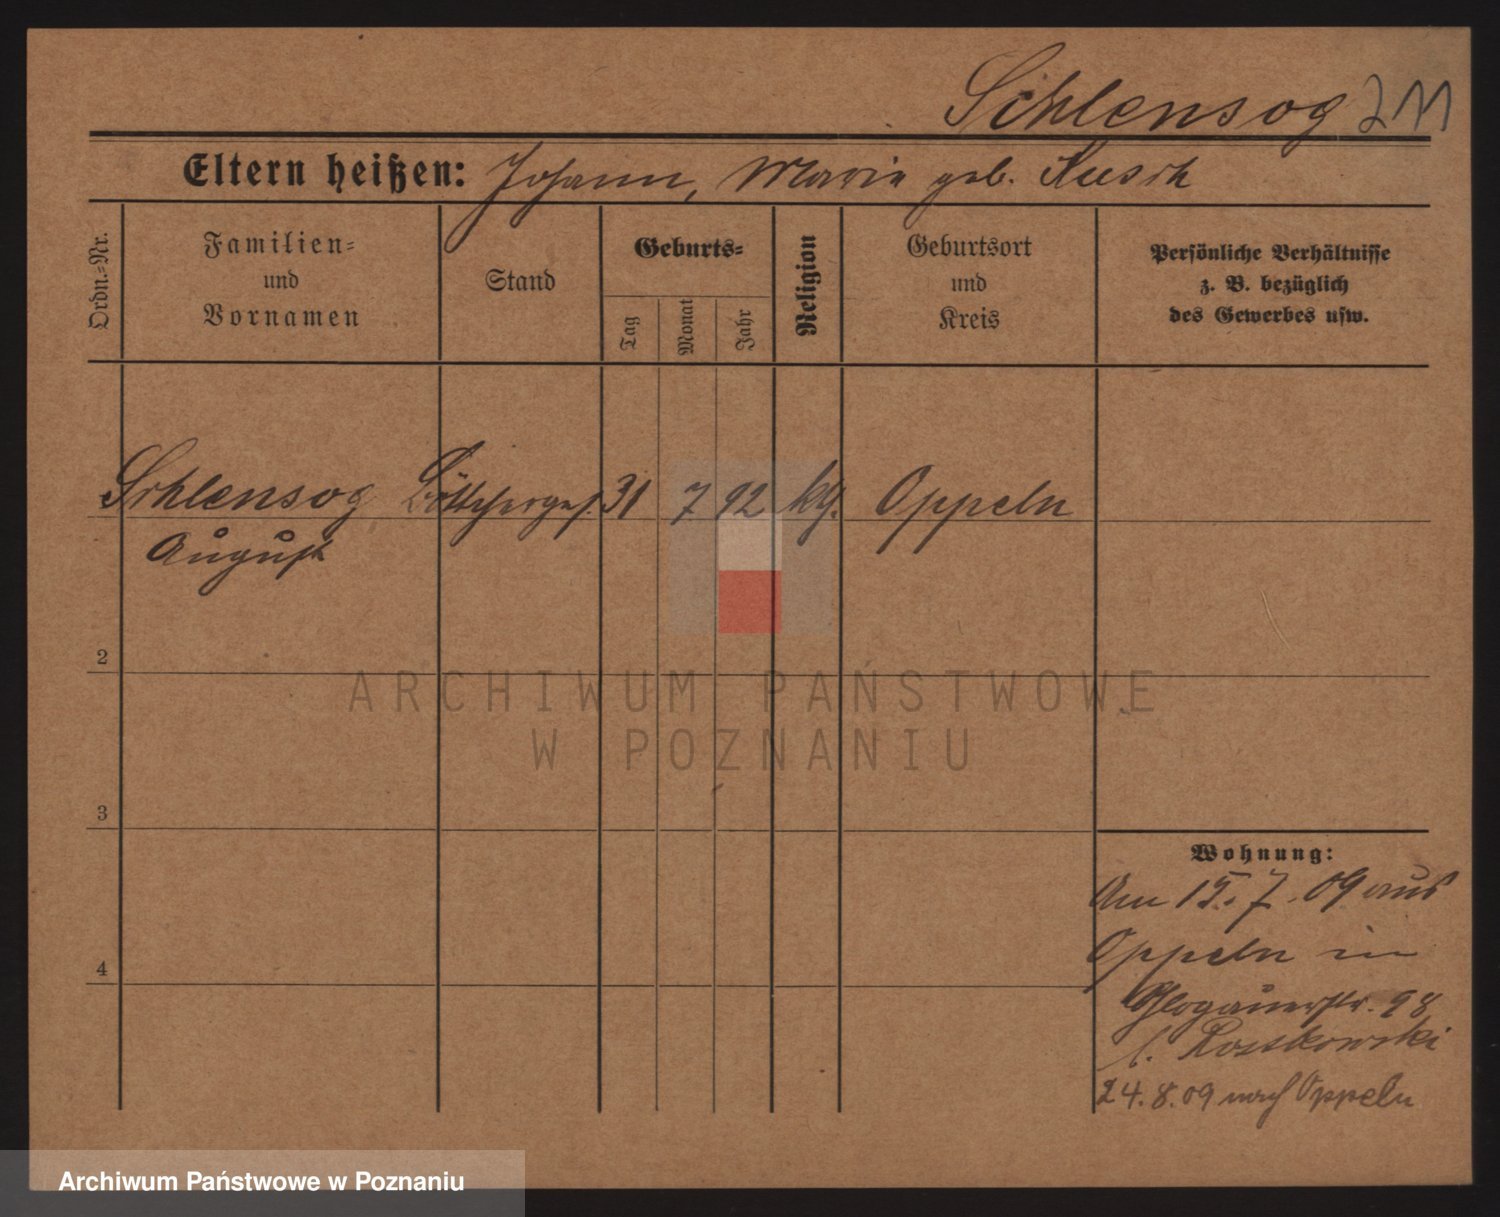 Schlensog 211
Eltern heißen: Johann, Marie geb. Kusch
Ordn.-Nr.
Familien-
und
Vornamen
Stand
Geburts-
Tag
Monat
Jahr
Religion
Geburtsort
und
Kreis
Persönliche Verhältnisse
z. B. bezüglich
des Gewerbes usw.
Schlensog Böttcherges. 31 7 92 kg. Oppeln
August
2
3
4
Wohnung:
Am 15.7.09 aus
Oppeln in
Glogauerstr. 98
b. Rostkowski
24.8.09 nach Oppeln
ARCHIWUM PAŃSTWOWE
W POZNANIU
Archiwum Państwowe w Poznaniu